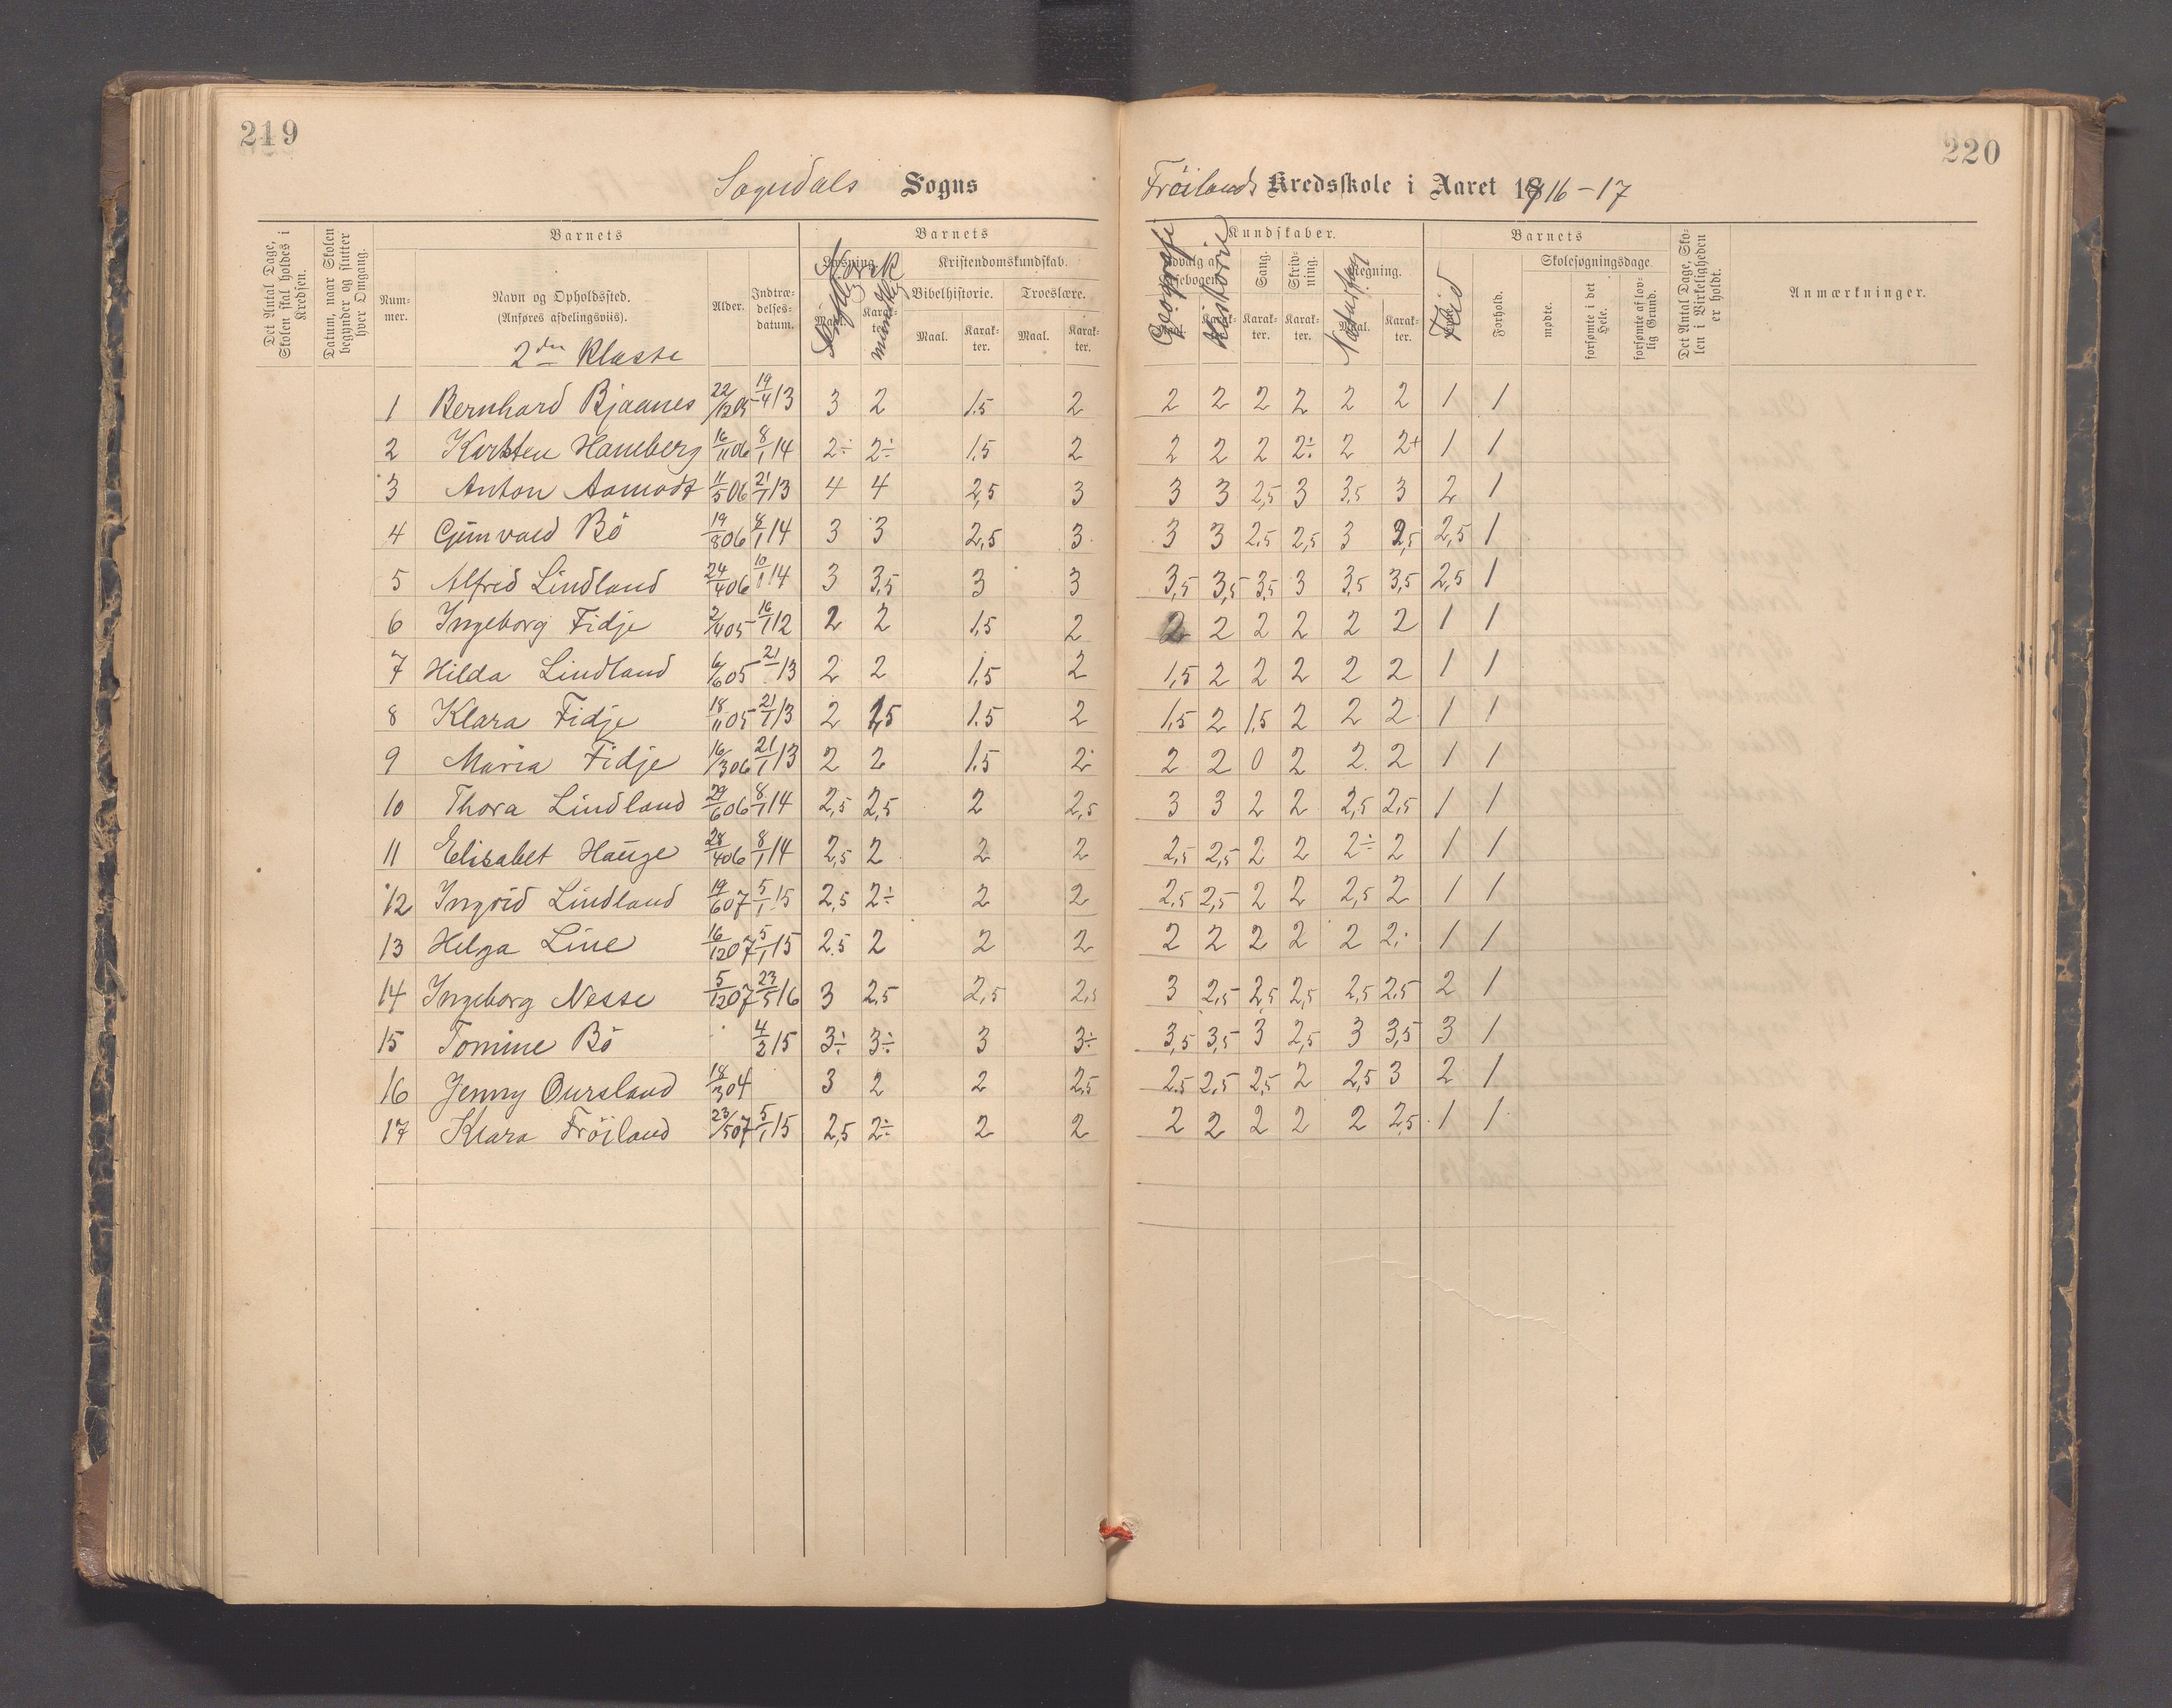 219
220
Sogndals Sogns
Frøilands Kredsskole i Aaret 1916-17
Det Antal Dage, Skolen skal holdes i Kredsen.
Datum, naar Skolen begynder og slutter hver Omgang.
Barnets
Nummer.
Navn og Opholdssted.
(Anføres afdelingsviis).
2den Klasse
Alder.
Indtrædelsesdatum.
Barnets
Læsning. Norsk
Maal. Karakter. mundtlig
Kristendomskundskab.
Bibelhistorie. Troeslære.
Maal. Karakter. Maal. Karakter.
Kundskaber.
Udvalg af Læsebogen. Geografi Historie
Maal. Karakter.
Sang. Karakter.
Skrivning. Karakter.
Regning. Naturfag
Maal. Karakter.
Barnets
Flid
Forhold.
Skolesøgningsdage
mødte.
forsømte i det Hele.
forsømte af lovlig Grund.
Det Antal Dage, Skolen i Virkeligheden er holdt.
Anmærkninger.
1 Bernhard Bjaanes 22/12 05 19/4 13 3 2 1.5 2 2 2 2 2 2 2 1 1
2 Karsten Hamberg 16/11 06 8/1 14 2÷ 2÷ 1.5 2 2 2 2 2÷ 2 2+ 1 1
3 Anton Aamodt 11/5 06 21/1 13 4 4 2,5 3 3 3 2,5 3 3,5 3 2 1
4 Gunvald Bö 19/8 06 8/1 14 3 3 2,5 3 3 3 2,5 2,5 3 2,5 2,5 1
5 Alfred Lindland 24/4 06 10/1 14 3 3,5 3 3 3,5 3,5 3,5 3 3,5 3,5 2,5 1
6 Ingeborg Fidje 2/4 05 16/1 12 2 2 1,5 2 2 2 2 2 2 2 1 1
7 Hilda Lindland 6/6 05 21/ 13 2 2 1,5 2 1,5 2 2 2 2 2 1 1
8 Klara Fidje 18/11 05 21/1 13 2 1,5 1.5 2 1,5 2 1,5 2 2 2 1 1
9 Maria Fidje 16/3 06 21/1 13 2 2 1.5 2 2 2 0 2 2 2 1 1
10 Thora Lindland 29/6 06 8/1 14 2,5 2,5 2 2,5 3 3 2 2 2,5 2,5 1 1
11 Elisabet Hauge 28/4 06 8/1 14 2,5 2 2 2 2,5 2,5 2 2 2÷ 2 1 1
12 Ingrid Lindland 19/6 07 5/1 15 2,5 2÷ 2 2 2,5 2,5 2 2 2,5 2 1 1
13 Helga Line 16/12 07 5/1 15 2.5 2 2 2 2 2 2 2 2 2 1 1
14 Ingeborg Nesse 5/12 07 23/5 16 3 2,5 2,5 2,5 3 2,5 2,5 2,5 2,5 2,5 2 1
15 Tomine Bö 4/2 15 3÷ 3÷ 3 3÷ 3,5 3,5 3 2,5 3 3,5 3 1
16 Jenny Oursland 18/3 04 3 2 2 2,5 2,5 2,5 2,5 2 2,5 3 2 1
17 Klara Fröiland 23/5 07 5/1 15 2,5 2÷ 2 2 2 2 2 2 2 2,5 1 1